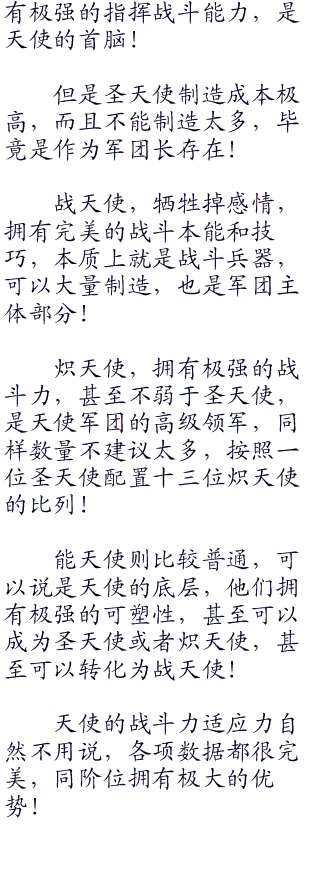 有极强的指挥战斗能力，是
天使的首脑！
但是圣天使制造成本极
高，而且不能制造太多，毕
竟是作为军团长存在！
战天使，牺牲掉感情，
拥有完美的战斗本能和技
巧，本质上就是战斗兵器，
可以大量制造，也是军团主
体部分！
炽天使，拥有极强的战
斗力，甚至不弱于圣天使，
是天使军团的高级领军，同
样数量不建议太多，按照一
位圣天使配置十三位炽天使
的比列！
能天使则比较普通，可
以说是天使的底层，他们拥
有极强的可塑性，甚至可以
成为圣天使或者炽天使，甚
至可以转化为战天使！
天使的战斗力适应力自
然不用说，各项数据都很完
美，同阶位拥有极大的优
势！